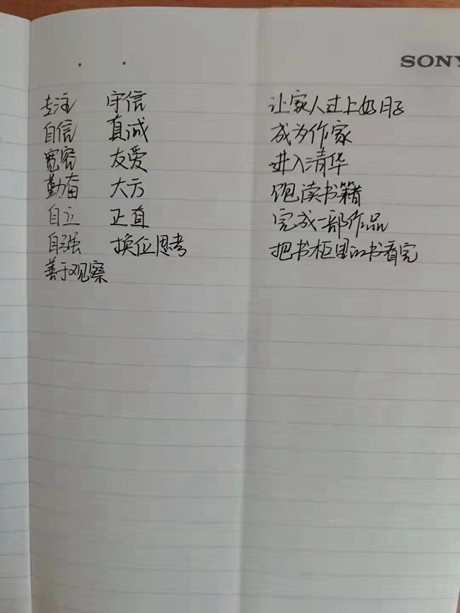 SONY
专注 守信 让家人过上好日子
自信 真诚 成为作家
宽容 友爱 进入清华
勤奋 大方 饱读书籍
自立 正直 完成一部作品
自强 换位思考 把书柜里的书看完
善于观察